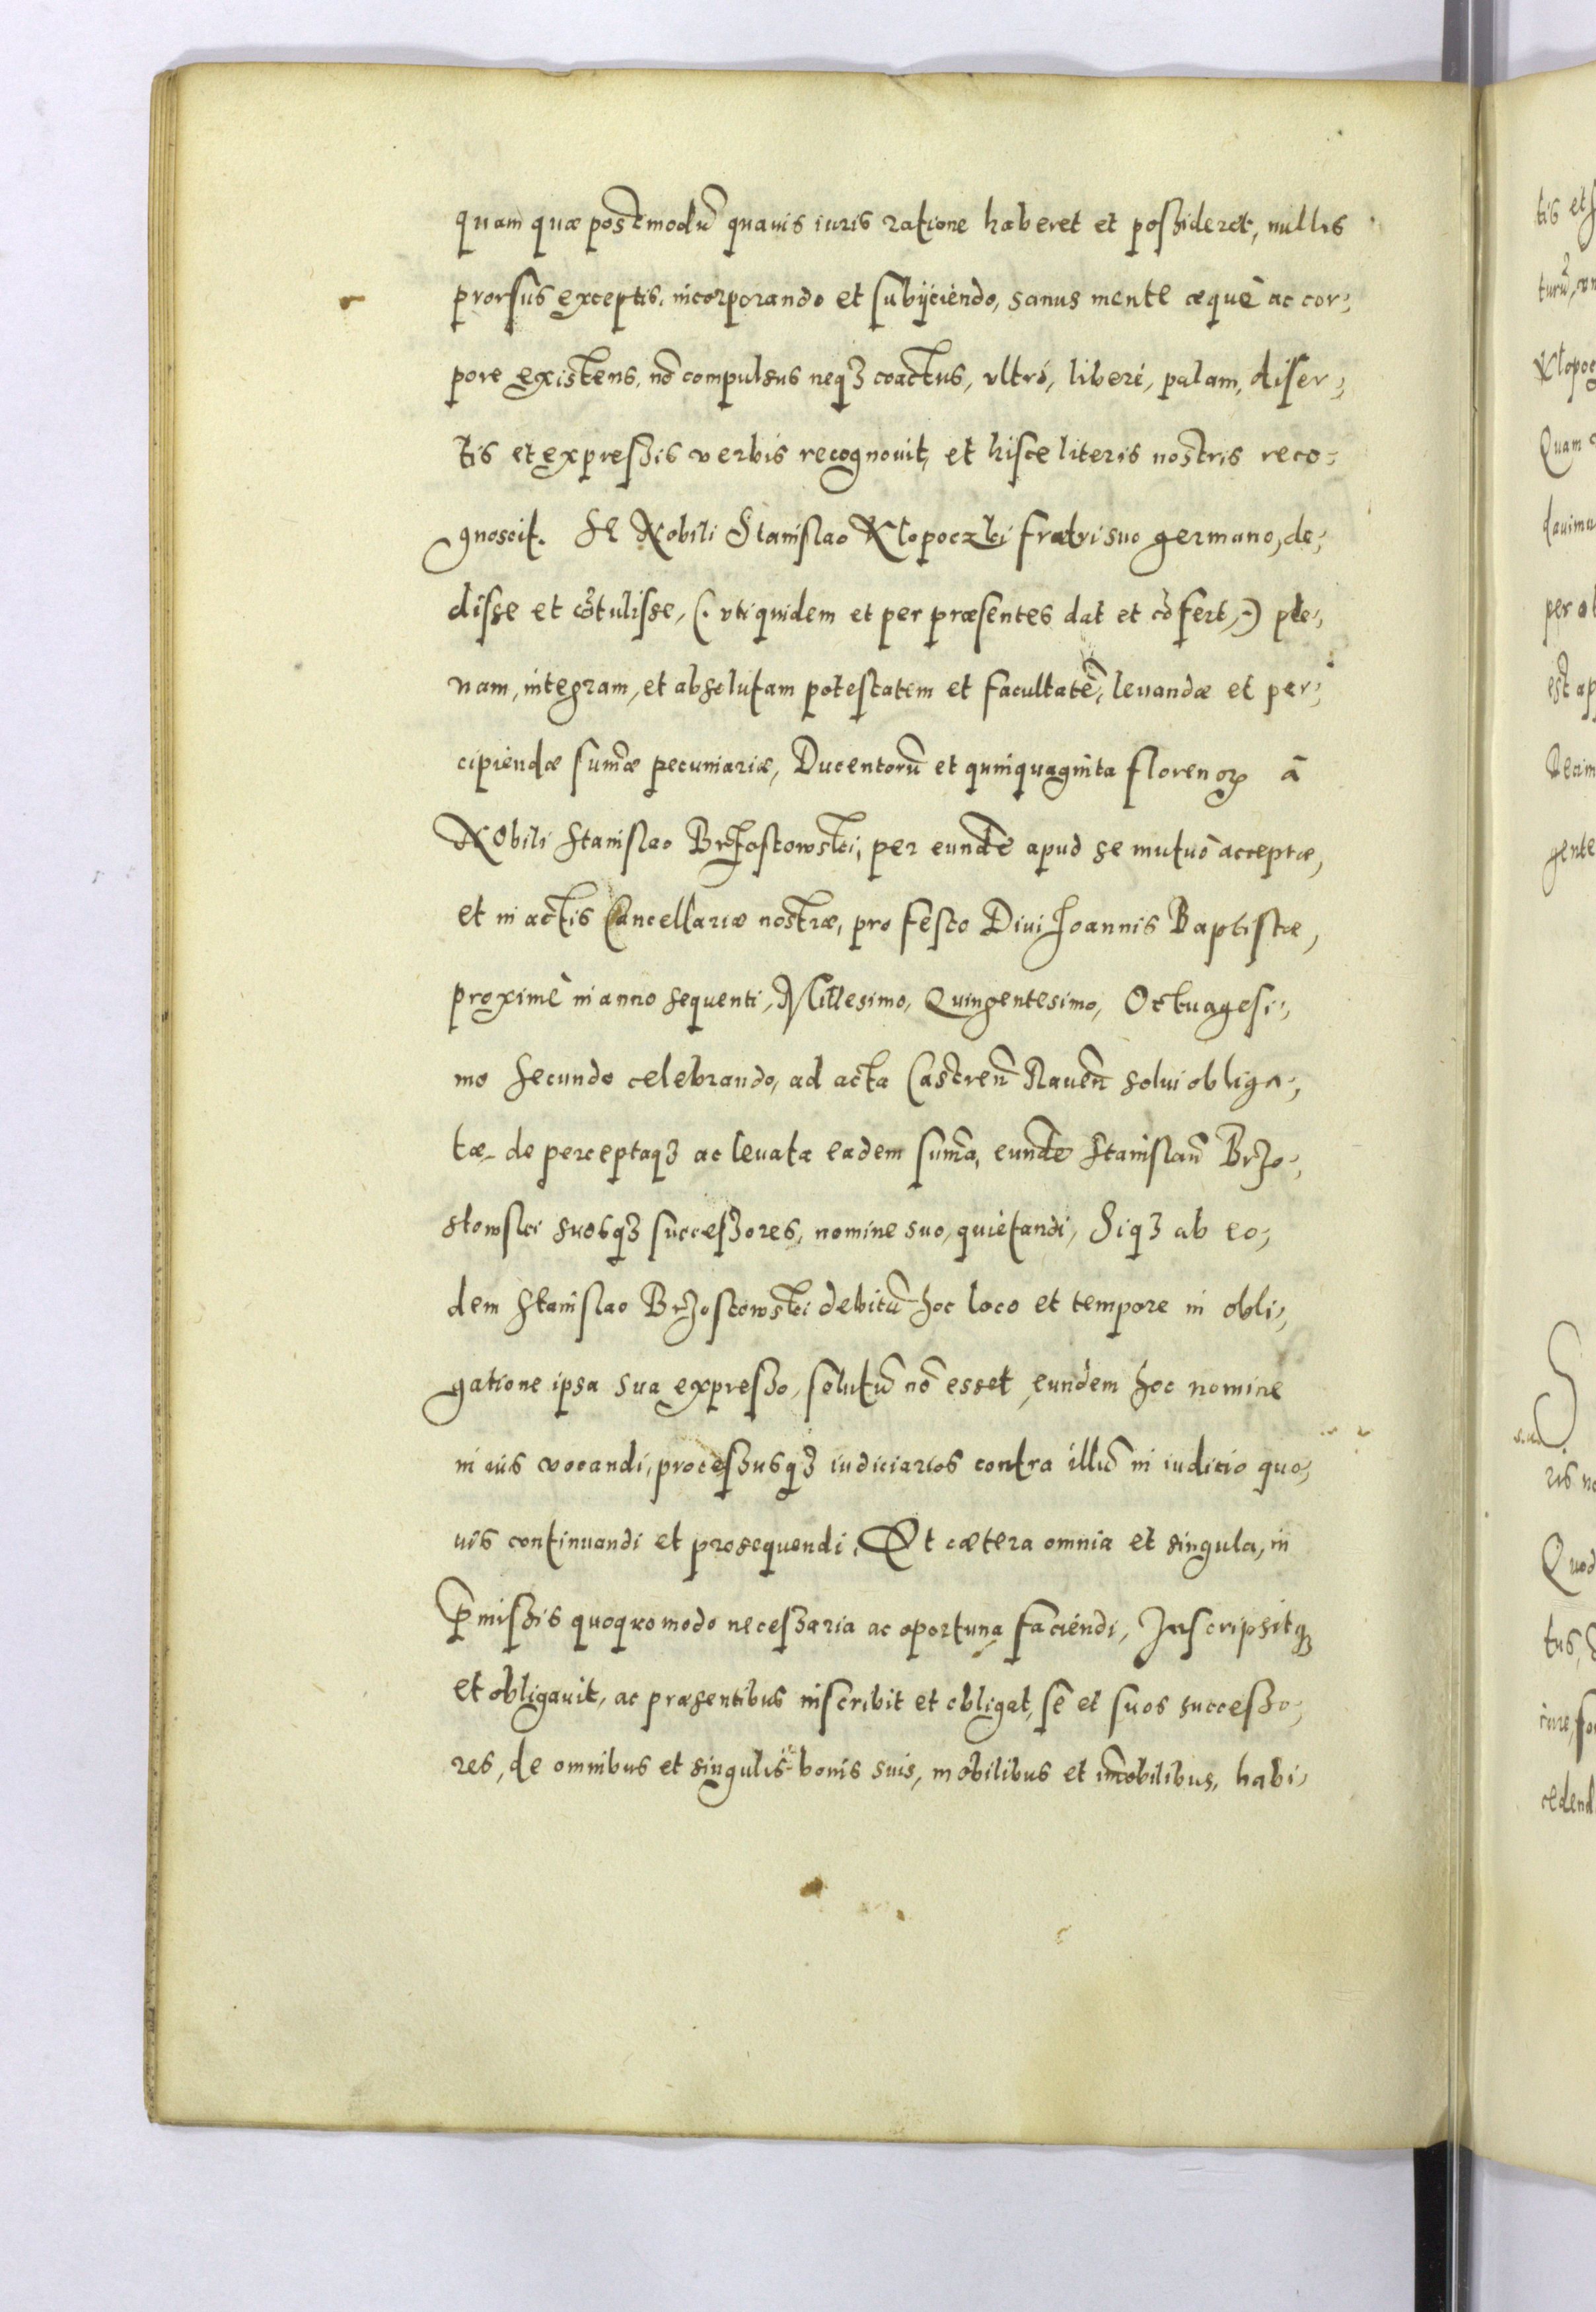 quam quæ postmodū quauis iuris ratione haberet et possideret, nullis
prorsus exceptis, incorporando et subijciendo, sanus mente æquè ac cor-
pore existens, nō compulsus neqz coactus, vltrò, liberè, palam, diser-
tis et expressis verbis recognouit, et hisce literis nostris reco-
gnoscit. Se Nobili Stanislao Klopoczki fratri suo germano, de-
disse et cōtulisse, (. vti quidem et per præsentes dat et cōfert .) ple-
nam, integram, et absolutam potestatem et facultatē, leuandæ et per-
cipiendæ sum̄æ pecuniariæ, Ducentorū et quinquaginta florenoꝝ à
Nobili Stanislao Brzostowski, per eundē apud se mutuò acceptæ,
et in actis Cancellariæ nostræ, pro festo Diui Joannis Baptistæ,
proximè in anno sequenti, Millesimo, Quingentesimo, Octuagesi-
mo secundo celebrando, ad acta Castren̄ Rauen̄ solui obliga-
tæ, de perceptaqz ac leuata eadem sum̄a, eundē Stanislaū Brzo-
stowski suosqz successores, nomine suo, quietandi, Siqz ab eo-
dem Stanislao Brzostowski debitū hoc loco et tempore in obli-
gatione ipsa sua expresso, solutū nō esset, eundem hoc nomine
in ius vocandi, processusqz iudiciarios contra illū in iudicio quo-
uis continuandi et prosequendi, Et cætera omnia et singula, in
p̄missis quoquomodo necessaria ac oportuna faciendi, Inscripsitqz
et obligauit, ac præsentibus inscribit et obligat, se et suos successo-
res, de omnibus et singulis bonis suis, mobilibus et im̄obilibus, habi-